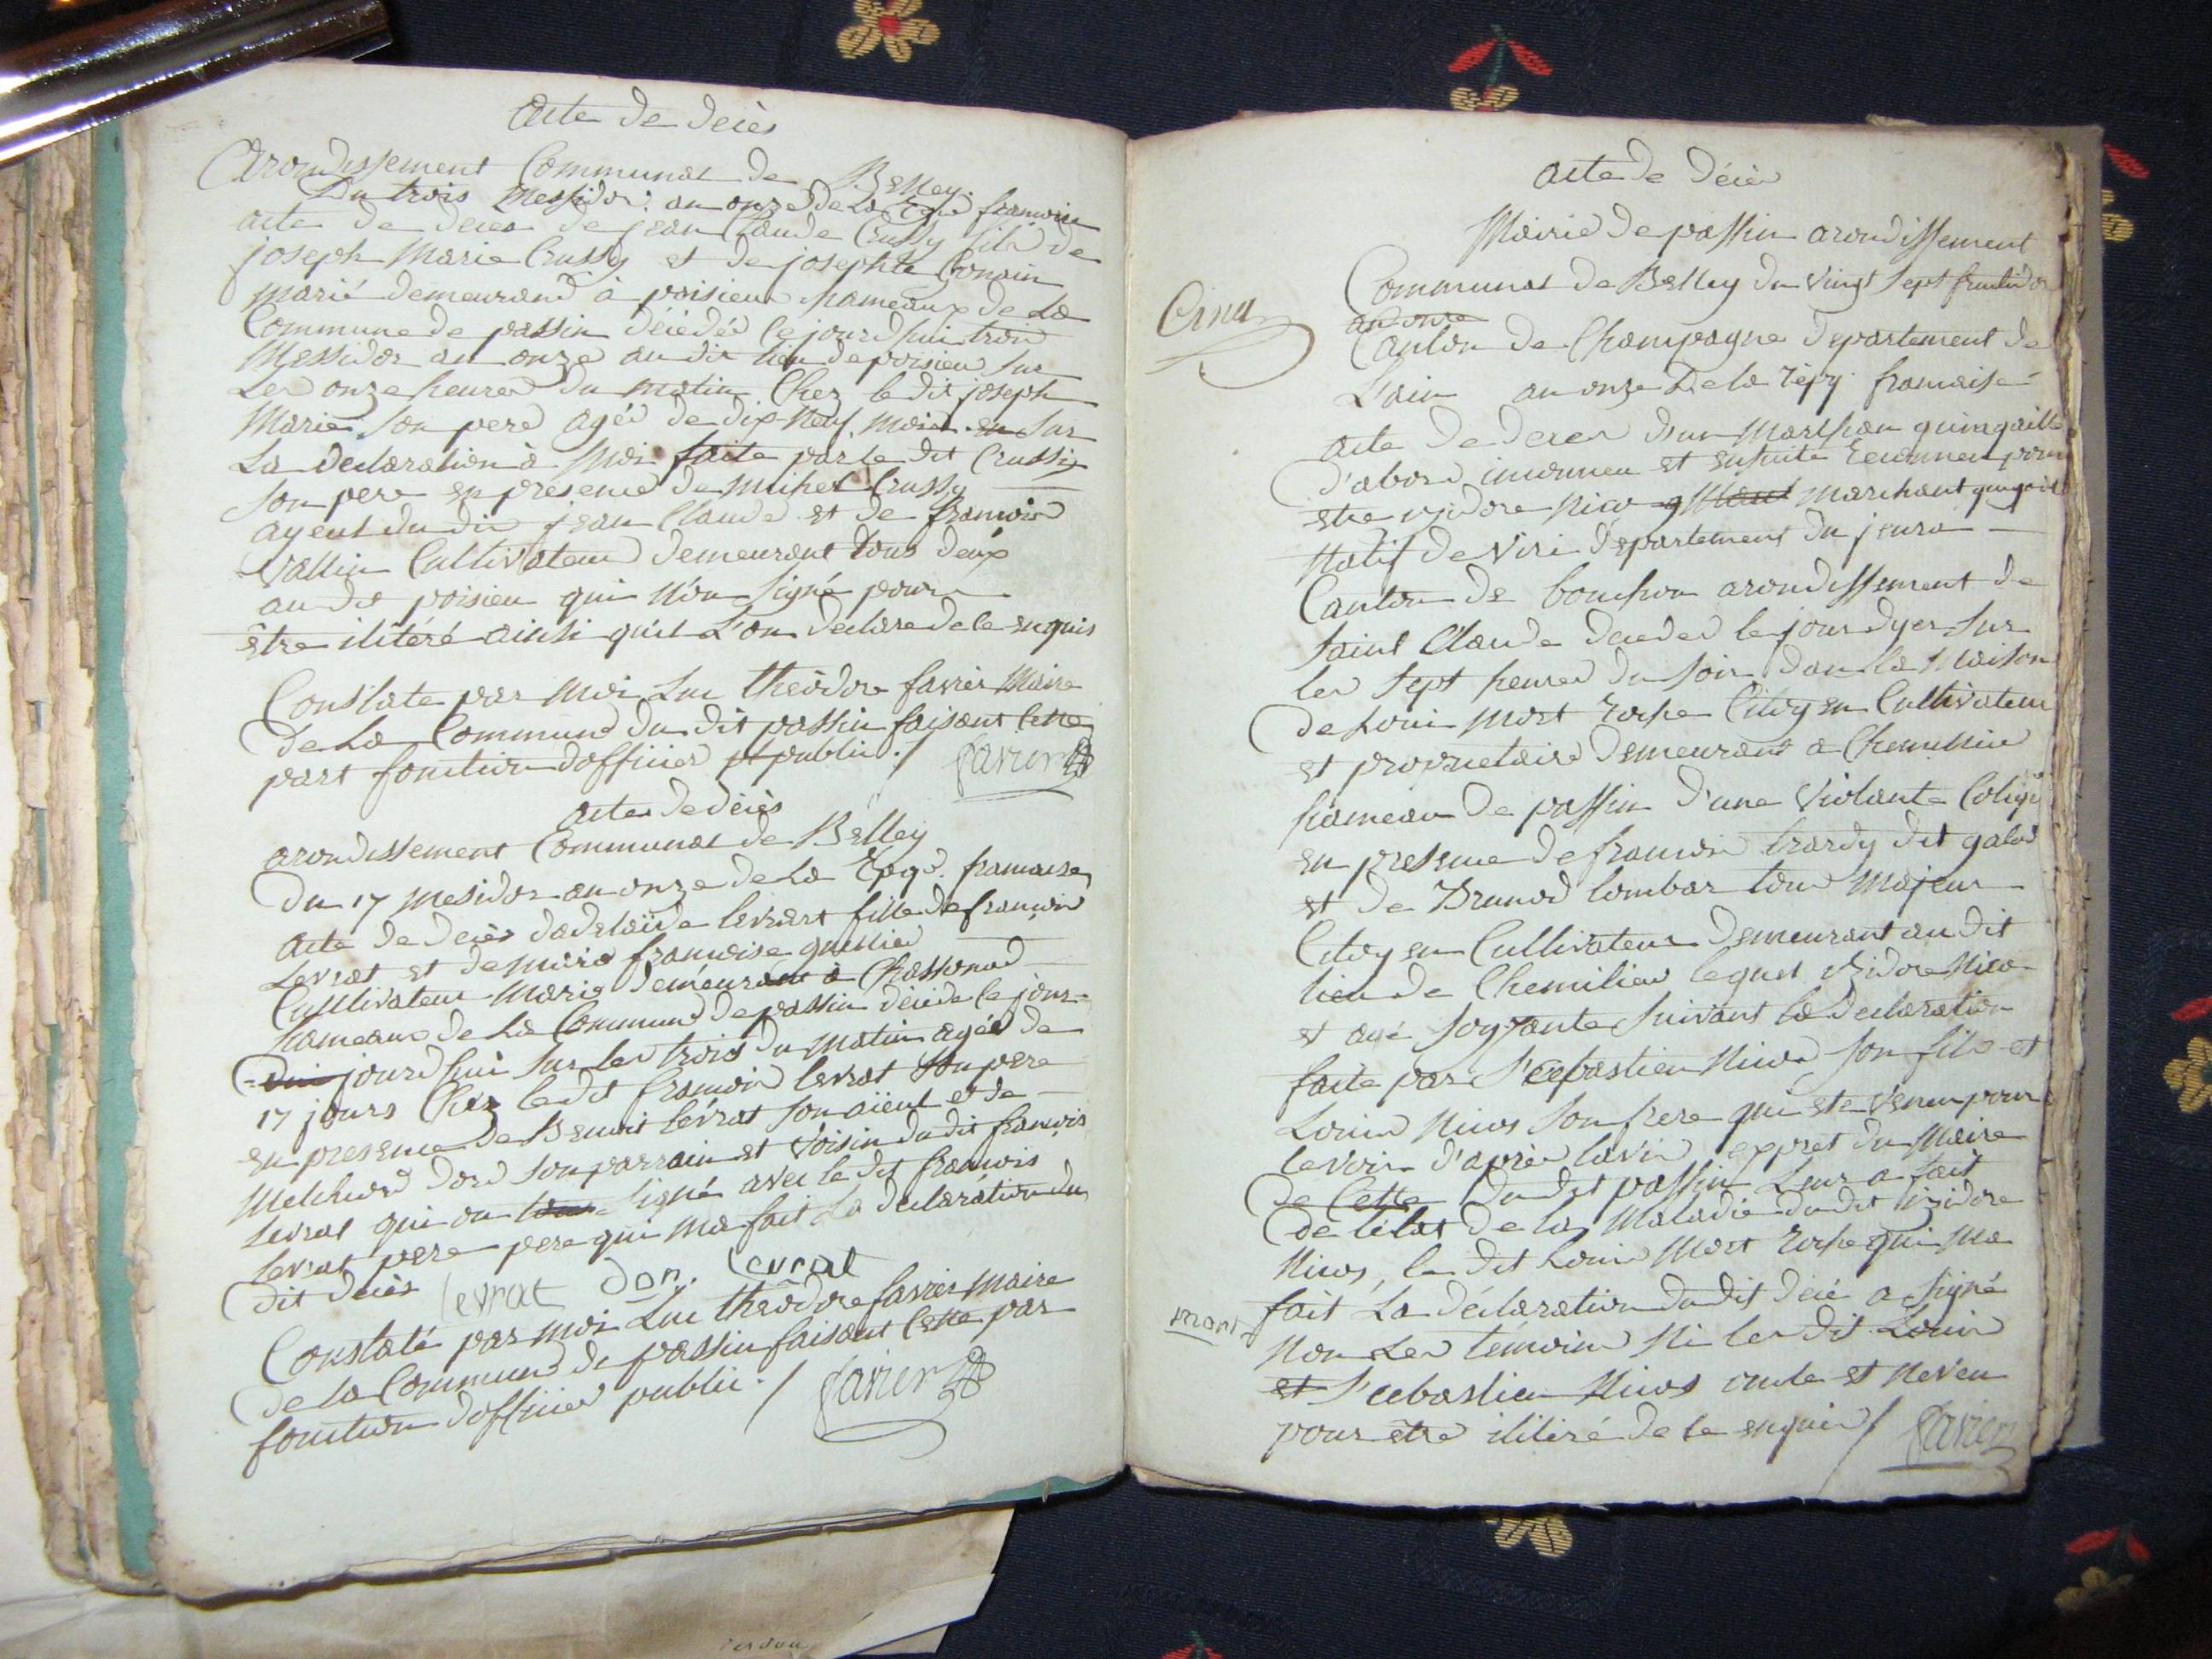 acte de décès
Arondissement Communal de Belley.
Du trois Messidor an onze de la Repe françoise
acte de deces de jean Claude Crussy fils de
joseph Marie Crussy et de josephte Conain
marié demeurand à poisieux hameaux de la
Commune de passin décédée le jourdhui trois
Messidor an onze au dit lieu de poisieu sur
les onze heures du matin Chez le dit joseph
Marie son pere agée de dix-neuf mois en sur
La declaration à Moi faite par le dit Crussy
son pere en presence de Michel Crussy
ayeul du dit jean Claude et de francois
vallin Cultivateur demeurant tous deux
au dit poisieu qui n'on signé pour
être ilitéré ainsi quil L'on declare de le enquis
Constate par moi Luc théodore favier Maire
De La Commune du dit passin faisant Cette
part fonction dofficier et public ./ favier
acte de décès
arondissement Communal de Belley
Du 17 Mesidor an onze de La Repq. francaise
acte de decès dadelaïde levrat fille de françois
Levrat et de Marie francoise guillier
Cultivateur Marie demeurant à Chassonod
hameaux de La Commune de passin décéde le jour-
-dui jourdhui sur les trois du matin agée de
17 jours Chez le dit francois levrat son pere
en presence de Benoit levrat son aïeul et de
Melchiord dord son parrain et voisin du dit francois
levrat qui on tous signé avec le dit francois
levrat pere pere qui ma fait La déclaration du
dit décès levrat don. levrat
Constaté par moi Luc theodore favier Maire
de La Commune de passin faisant Cette par
fonction dofficier public ./ favier
acte de décès
Mairie de passin arondissement
Communal de Belley du vingt sept fructidor
an onze
Canton de Champagne departement de
L'ain an onze de la répq. francaise
acte de deces d'un Marchan quinqaille
d'abord inconneu et ensuite reconneu pour
etre isidore nico marchant quinqail
Natif de viri département du jeura
Canton de bouchou arondissement de
Saint Claude decedé le jour dyer sur
les sept heures du soir dans la Maison
de Loui Mort roche Citoyen Cultivateur
et proprietaire demeurant a Chemillieu
hameau de passin d'une violente Colique
en presence de francois trardy dit galod
et de Brunod lombar tous majeur
Citoyen Cultivateur demeurant au dit
lieu de Chemilieu lequel isidore Nico
et agé soixante suivant la déclaration
faite par S'ebastien Nico son fils et
Louis Nicos son frere qui ete vénu pour
levoir d'après lavis expret du Maire
de Cette du dit passin Leur a fait
de létat de la Maladie du dit isidore
Nicos, le dit Louis Mort roche qui ma
fait La déclaration du dit décé a signé
non les témoins ni les dit Louis
et S'ebastien Nicos oncle et Neveu
pour etre ilitéré de le enquis ./ favier